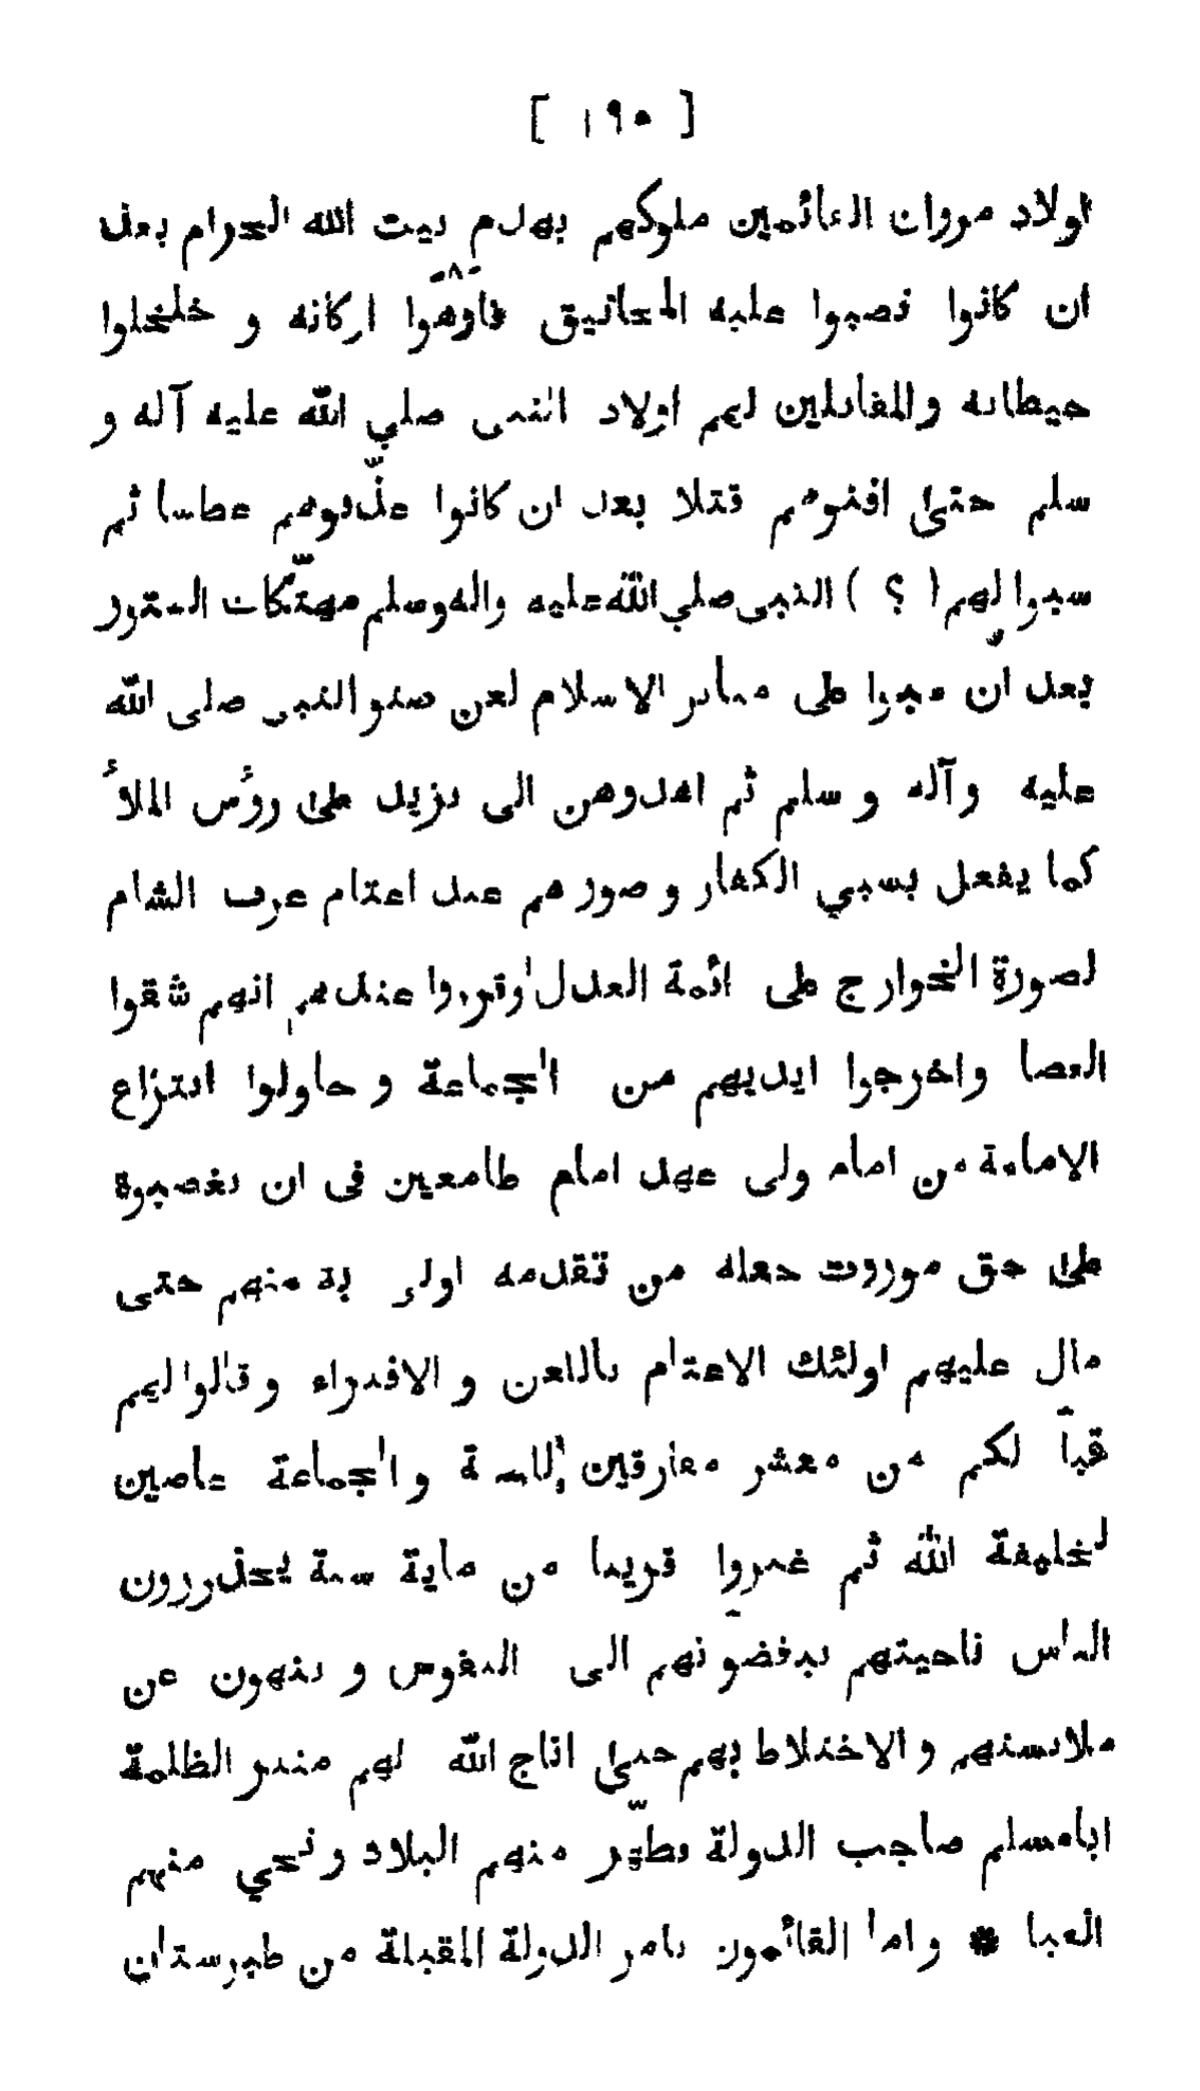 [ ١٩٥ ]
اولاد مروان القائمين ملوكهم بهدم بيت الله الحرام بعد
ان كانوا نصبوا عليه المجانيق فاوهوا اركانه و خلخلوا
حيطانه والمقاتلين لهم اولاد النبى صلي الله عليه آله و
سلم حتى افنوهم قتلا بعد ان كانوا عذّبوهم عطسا ثم
سبوا لهم ( ؟ ) النبى صلي الله عليه واله وسلم مهتّكات الستور
بعد ان سبوا على منابر الاسلام لعن صنو النبى صلى الله
عليه وآله و سلم ثم اهدوهن الى يزيد على روؤس الملأ
كما يفعل بسبي الكفار و صورهم عند اعتام عرب الشام
لصورة الخوارج على ائمة العدل وقرروا عندهم انهم شقوا
العصا واخرجوا ايديهم من الجماعة و حاولوا انتزاع
الامامة من امام ولى عهد امام طامعين فى ان يغصبوة
على حق موروث جعله من تقدمه اولى بة منهم حتى
مال عليهم اولئك الاعتام باللعن و الافتراء و قالوا لهم
قبا لكم من معشر مفارقين للسنة و الجماعة عاصين
لخليفة الله ثم غبروا قريبا من ماية سنة يحذررون
الناس ناحيتهم يبغضونهم الى النفوس و ينهون عن
ملابستهم و الاختلاط بهم حتى اتاج الله لهم مبير الظلمة
ابامسلم صاحب الدولة فطهّر منهم البلاد و نحي منهم
العبا * و اما القائمون بامر الدولة المقبلة من طبرستان